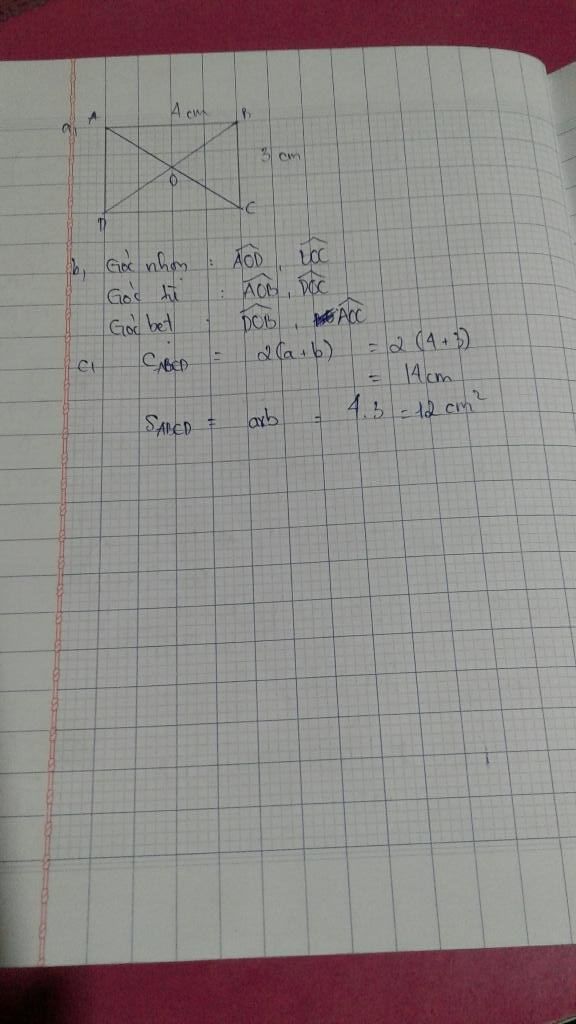 4 cm
a, A B
3 cm
O
D C
b, Góc nhọn : AOD, BOC
Góc tù : AOB, DOC
Góc bẹt : DOB, AOC
c, C ABCD = 2(a+b) = 2(4+3)
= 14cm
S ABCD = axb = 4.3 = 12 cm²